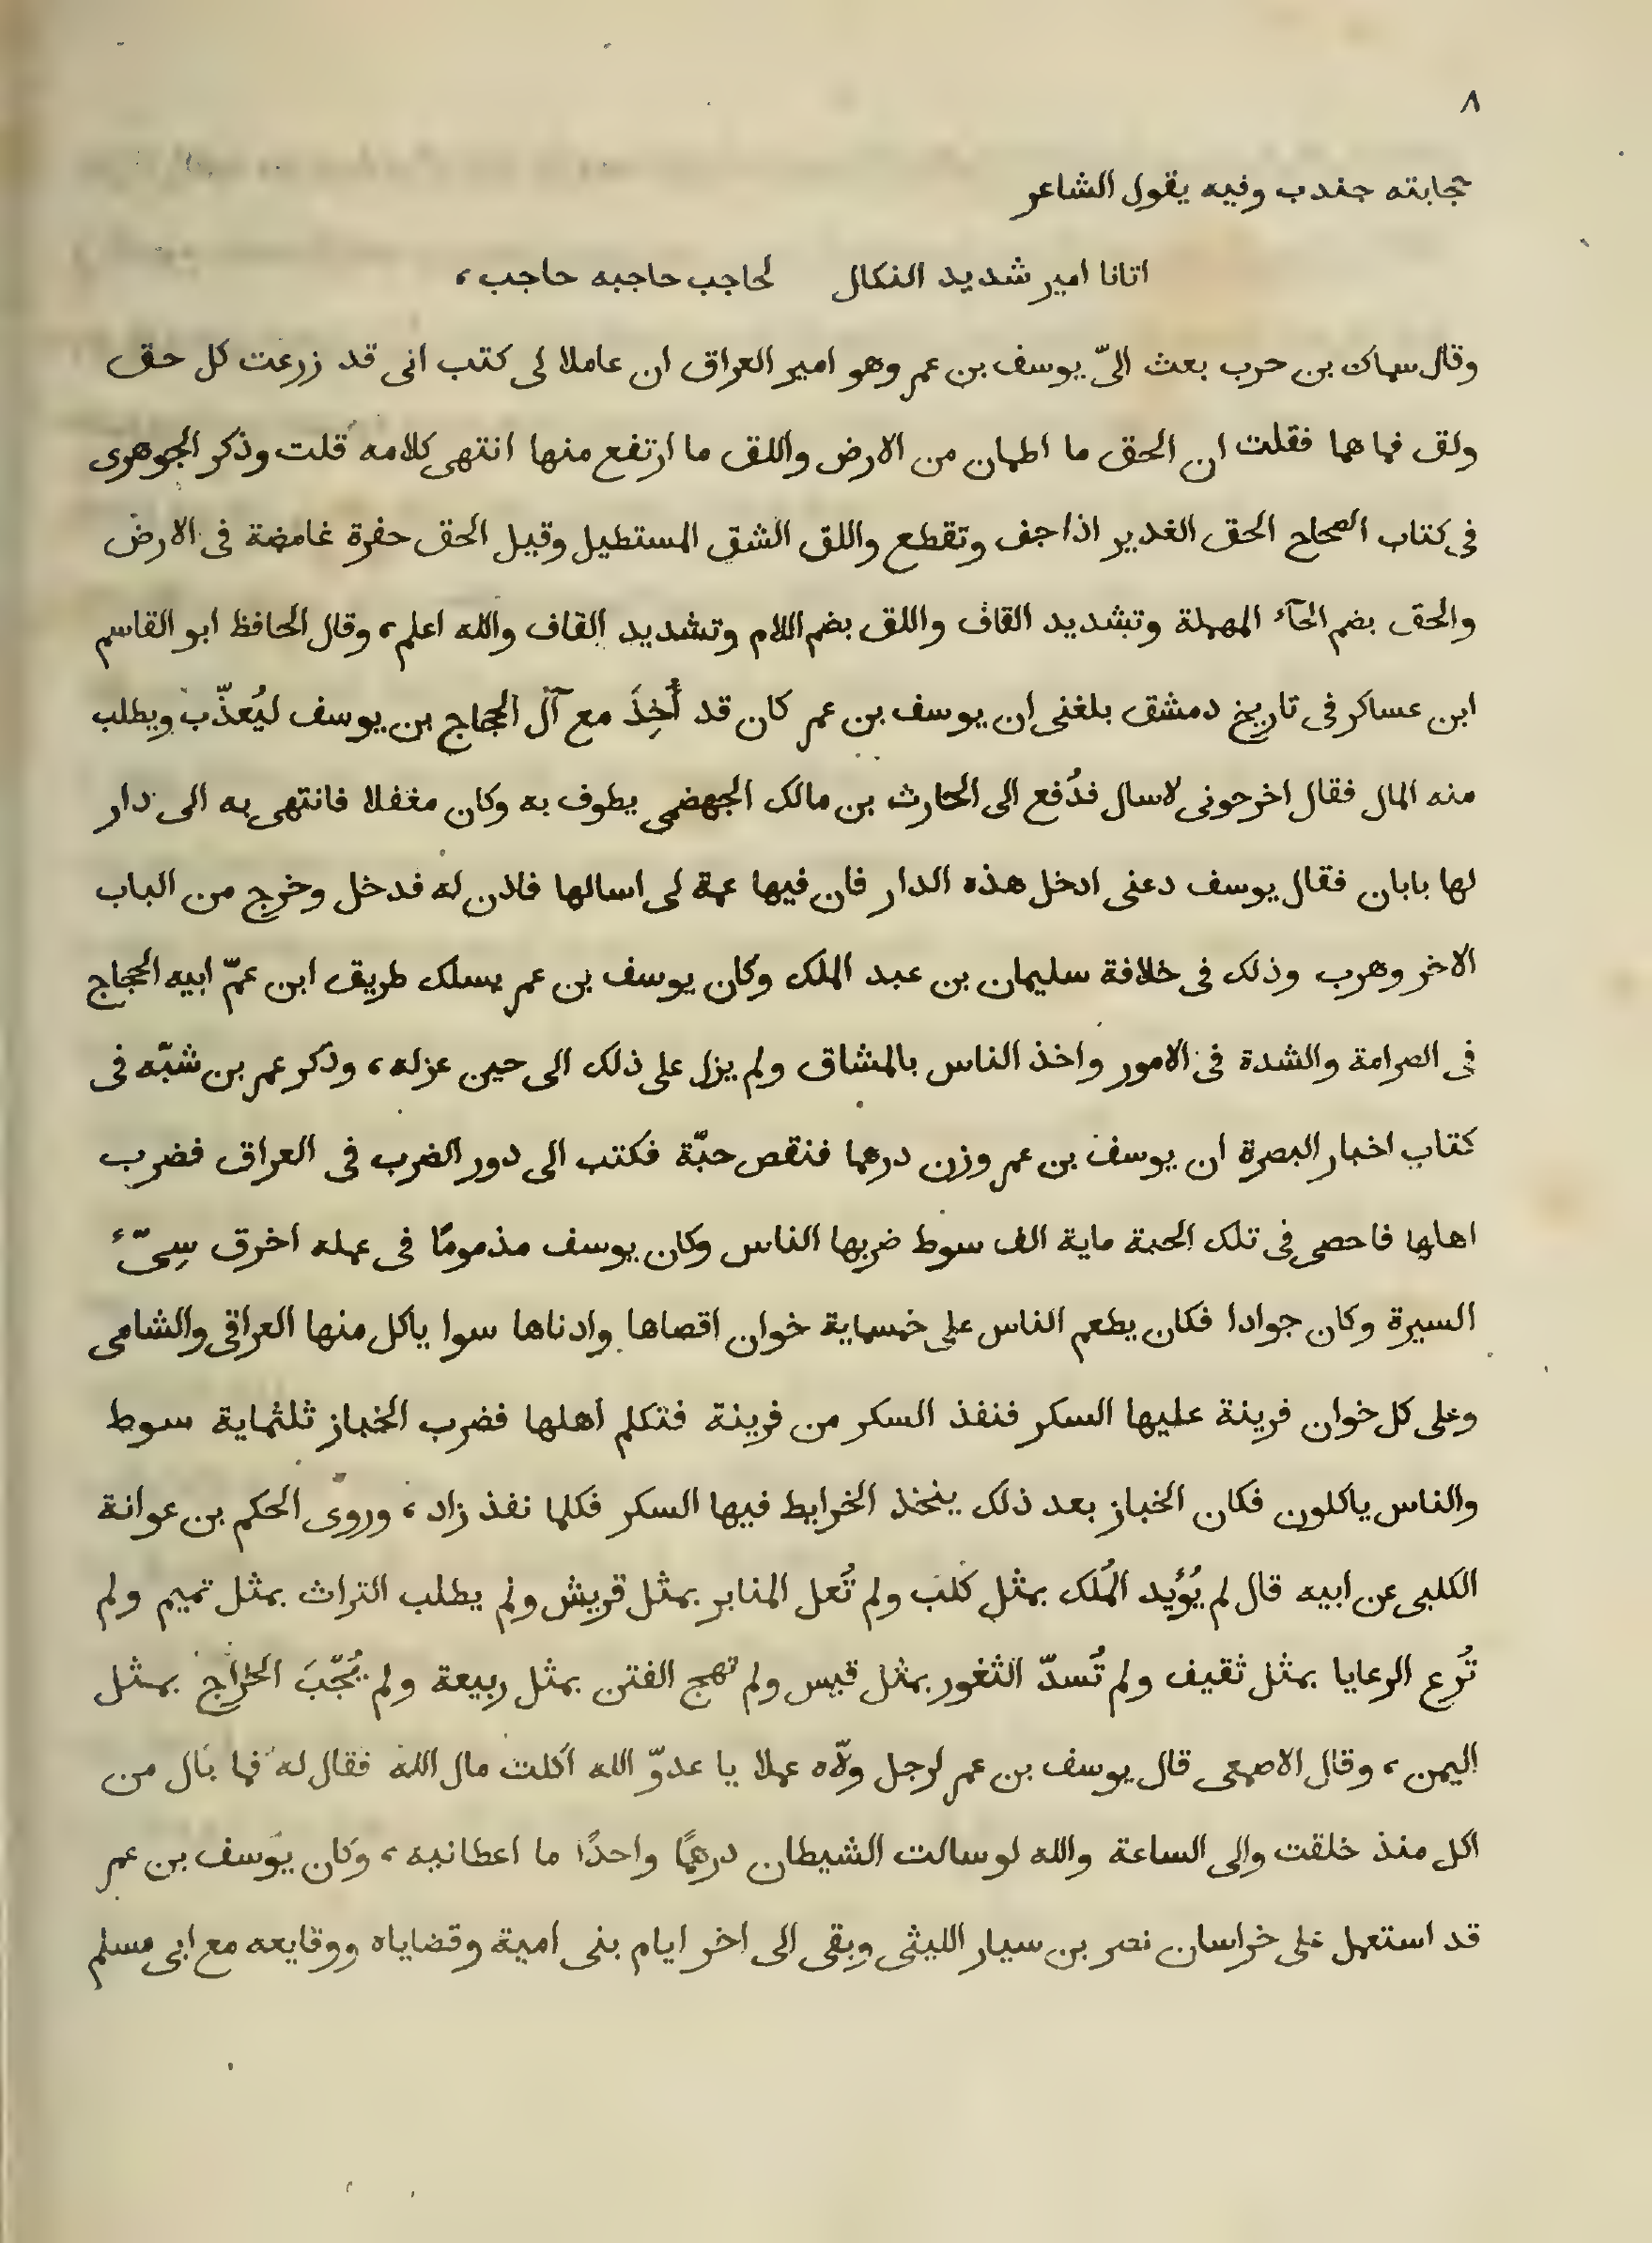 ٨
حجابته جندب وفيه يقول الشاعر
اتانا امير شديد النكال لحاجب حاجبه حاجب،
وقال سماك بن حرب بعث الىّ يوسف بن عمر وهو امير العراق ان عاملا لى كتب انى قد زرعت كل حق
ولق فما هما فقلت ان الحق ما اطمان من الارض واللق ما ارتفع منها انتهى كلامه قلت وذكر الجوهرى
فى كتاب الصحاح الحق الغدير اذا جف وتقطع واللق الشق المستطيل وقيل الحق حفرة غامضة فى الارض
والحق بضم الحآء المهملة وتشديد القاف واللق بضم اللام وتشديد القاف والله اعلم، وقال الحافظ ابو القاسم
ابن عساكر فى تاريخ دمشق بلغنى ان يوسف بن عمر كان قد أُخِذَ مع آل الحجاج بن يوسف ليُعذّب ويطلب
منه المال فقال اخرجونى لاسال فدُفع الى الحارث بن مالك الجهضمى يطوف به وكان مغفلا فانتهى به الى دار
لها بابان فقال يوسف دعنى ادخل هذه الدار فان فيها عمة لى اسالها فاذن له فدخل وخرج من الباب
الاخر وهرب وذلك فى خلافة سليمان بن عبد الملك وكان يوسف بن عمر يسلك طريق ابن عمّ ابيه الحجاج
فى الصرامة والشدة فى الامور واخذ الناس بالمشاق ولم يزل على ذلك الى حين عزله، وذكر عمر بن شبّه فى
كتاب اخبار البصرة ان يوسف بن عمر وزن درهما فنقص حبّة فكتب الى دور الضرب فى العراق فضرب
اهلها فاحصى فى تلك الحبة ماية الف سوط ضربها الناس وكان يوسف مذمومًا فى عمله اخرق سِىّءُ
السيرة وكان جوادا فكان يطعم الناس على خمسماية خوان اقصاها وادناها سوا ياكل منها العراقى والشامى
وعلى كل خوان فرينة عليها السكر فنفذ السكر من فرينة فتكلم اهلها فضرب الخباز ثلثماية سوط
والناس ياكلون فكان الخباز بعد ذلك يتخذ الخرايط فيها السكر فكلما نفذ زاد، وروى الحكم بن عوانة
الكلبى عن ابيه قال لم يُؤيد المُلك بمثل كلب ولم تُعل المنابر بمثل قريش ولم يطلب التراث بمثل تميم ولم
تُرع الرعايا بمثل ثقيف ولم تُسدّ الثغور بمثل قيس ولم تهج الفتن بمثل ربيعة ولم يُجّبَ الخراج بمثل
اليمن، وقال الاصمعى قال يوسف بن عمر لرجل ولّاه عملا يا عدوّ الله اكلت مال الله فقال له فما بال من
اكل منذ خلقت والى الساعة والله لو سالت الشيطان درهمًا واحدًا ما اعطانيه، وكان يوسف بن عمر
قد استعمل على خراسان نصر بن سيار الليثى وبقى الى اخر ايام بنى امية وقضاياه ووقايعه مع ابى مسلم